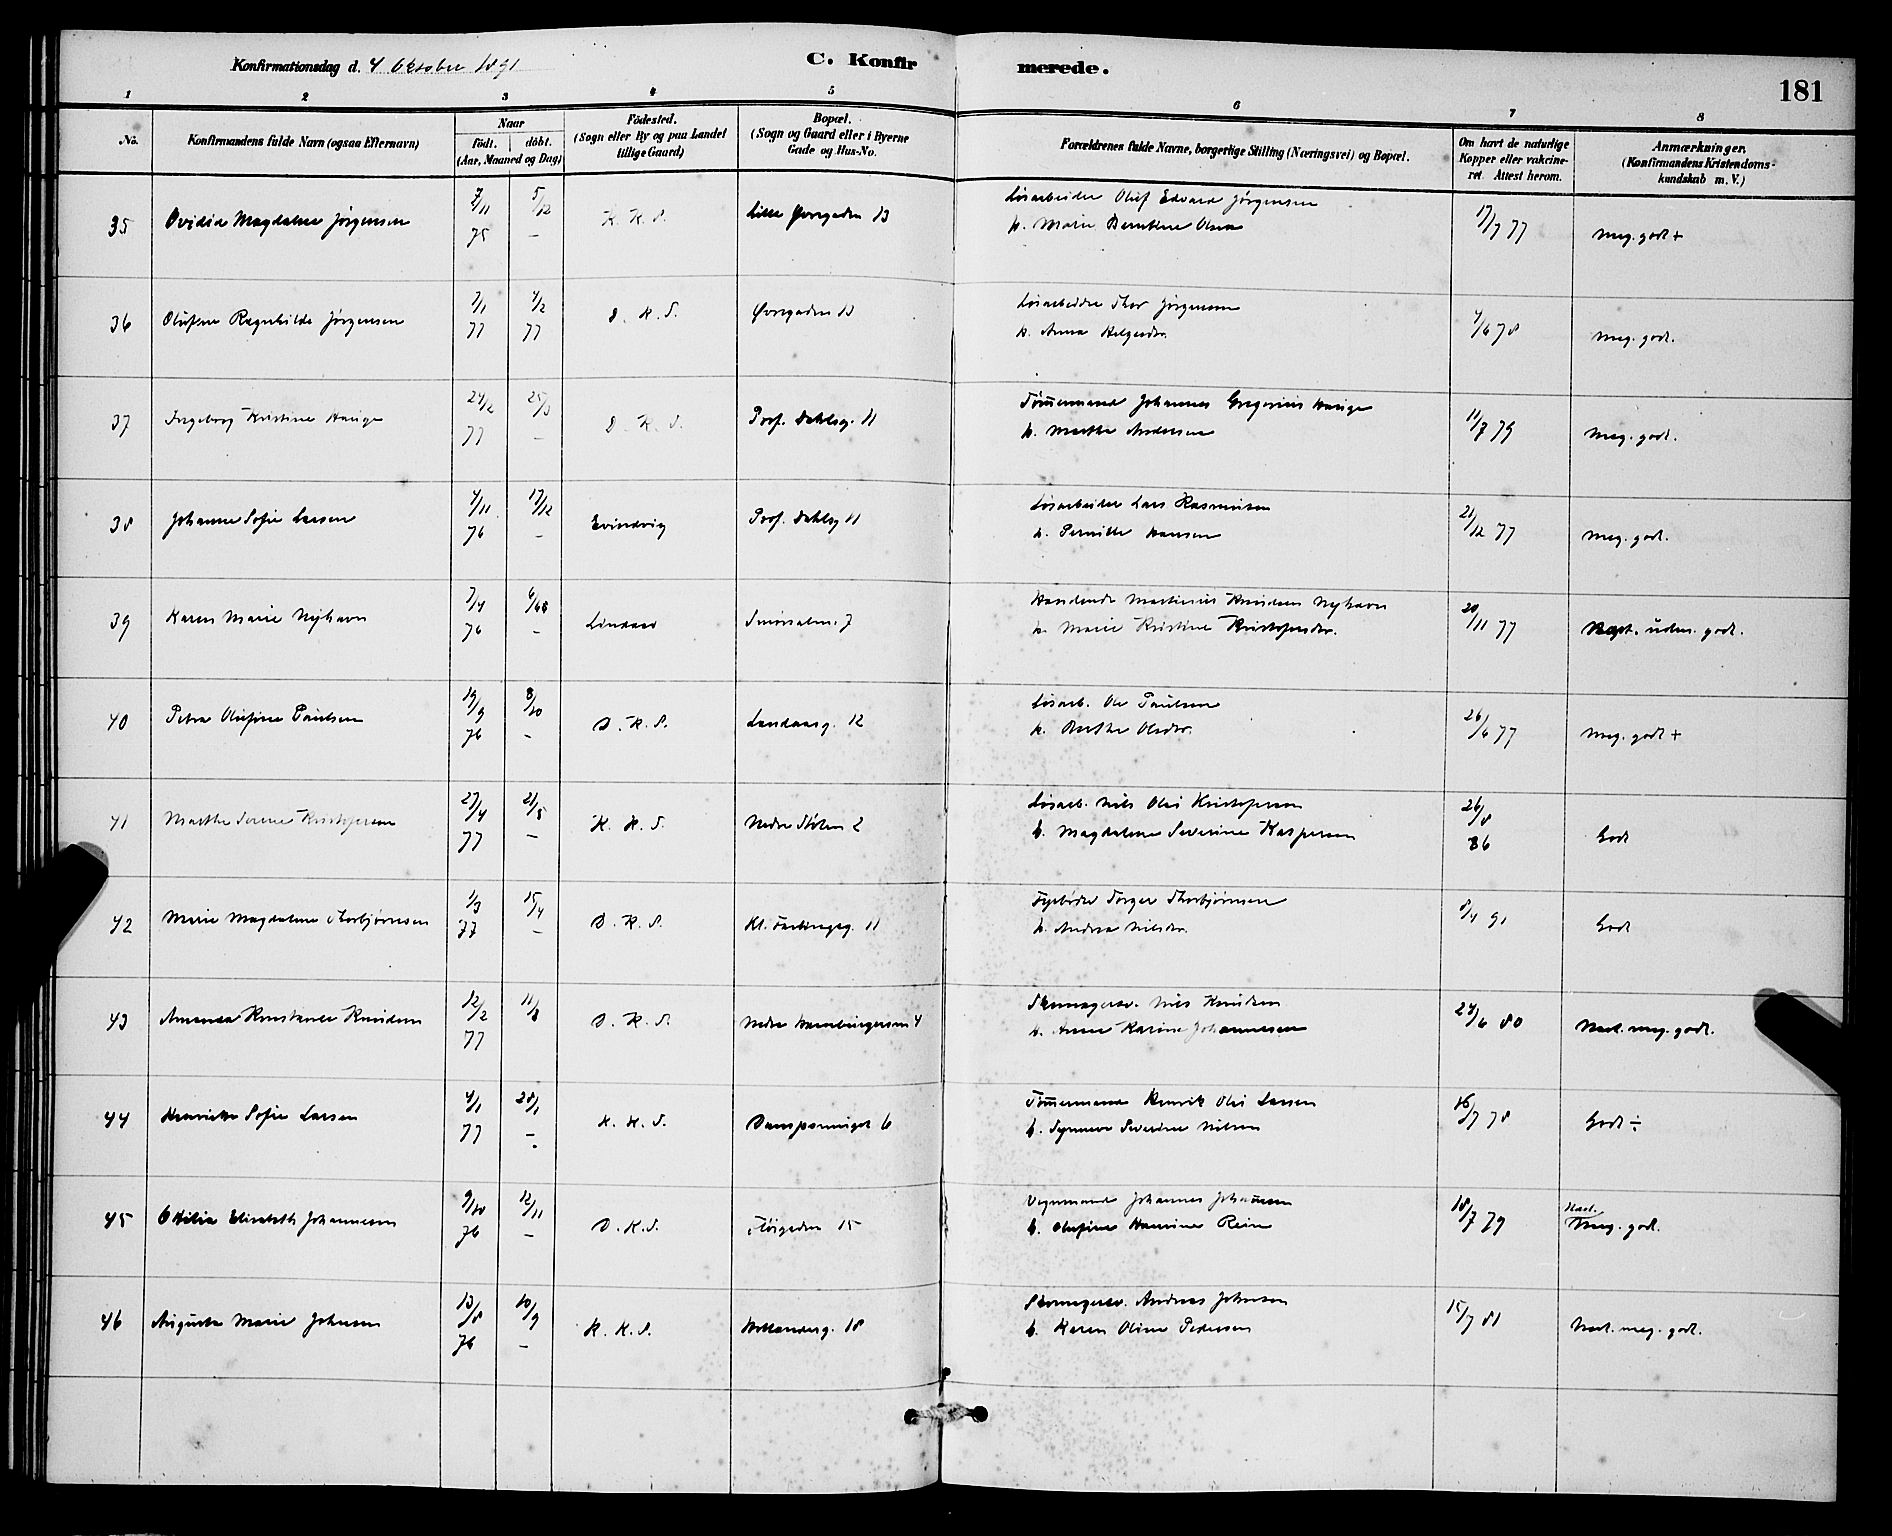 Konfirmationsdag d. 4 Oktober 1891
C. Konfirmerede.
181
1 2 3 4 5 6 7 8
No.
Konfirmandens fulde Navn (ogsaa Efternavn)
Naar
födt. döbt.
(Aar, Maaned og Dag)
Födested.
(Sogn eller By og paa Landet
tillige Gaard)
Bopæl.
(Sogn og Gaard eller i Byerne
Gade og Hus-No.
Forældrenes fulde Navne, borgerlige Stilling (Næringsvei) og Bopæl.
Om havt de naturlige
Kopper eller vakcine-
ret. Attest herom.
Anmærkninger.
(Konfirmandens Kristendoms-
kundskab m. V.)
35 Ovidia Magdalene Jørgensen 2/11 75 5/12 – K. K. S. Lille Øvregaden 13
Løsarbeider Oluf Edvard Jørgensen
h. Marie Berntine Olsen
17/7 77 Meg. godt +
36 Olufine Ragnhilde Jørgensen 7/1 77 4/2 77 D. K. S. Øvregaden 13
Løsarbeider Thor Jørgensen
h. Anna Helgesdr.
4/6 78 Meg. godt.
37 Ingeborg Kristine Hauge 24/2 77 25/3 – D. K. S. Prof. Dahlsg. 11
Tømmermand Johannes Gregorius Hauge
h. Marthe Andersen
11/7 79 Meg. godt.
38 Johanne Sofie Larsen 4/11 76 17/12 – Evindvig Prof. Dahlsg 11
Løsarbeider Lars Rasmussen
h. Pernille Hansen
21/12 77 Meg. godt.
39 Karen Marie Nyhavn 7/4 76 – Lindaas 7
Martinius Knudsen Nyhavn
h. Marie Kristine Kristofersdr.
20/11 77 godt.
40 Petra Olufine Paulsen 19/9 76 8/10 – D. K. S. Landaasg. 12
Løsarb. Ole Paulsen
h. Berthe Olsdr.
26/6 77 Meg. godt +
41 Marthe Serine Kristofersen 27/4 77 21/5 – K. K. S. Nedre Stølen 2
Løsarb. Nils Olai Kristofersen
h. Magdalene Severine Kaspersen
26/8 86 Godt
42 Marie Magdalene Thorbjørnsen 1/3 77 15/4 – D. K. S. 11
Fyrbøder Torger Thorbjørnsen
h. Andrea Nilsdr.
8/4 91 Godt
43 Amanda Konstanse Knudsen 12/2 77 11/3 D. K. S. Nedre Hamburgersm 4
Skomagersv. Nils Knudsen
h. Anne Karine Johannessen
24/6 80 Næst. meg. godt.
44 Henrikke Sofie Larsen 4/1 77 28/1 – K. K. S. 6
Tømmermand Henrik Olai Larsen
h. Synneve Severine Nilsen
16/7 78 Godt ÷
45 Othilie Elisabeth Johannessen 9/10 76 12/11 – D. K. S. 15
Vognmand Johannes Johannessen
h. Olufine Hansine Rein
18/7 79 Næst. Meg. godt.
46 Augusta Marie Johnsen 13/8 76 10/9 – K. K. S. Hollænderg. 18
Skomagersv. Andreas Johnsen
h. Karen Oline Pedersen
15/7 81 Næst. meg. godt.